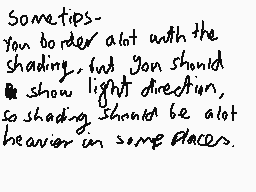 some tips-
You border alot with the
shading, but you should
show light direction,
so shading should be alot
heavier in some places.